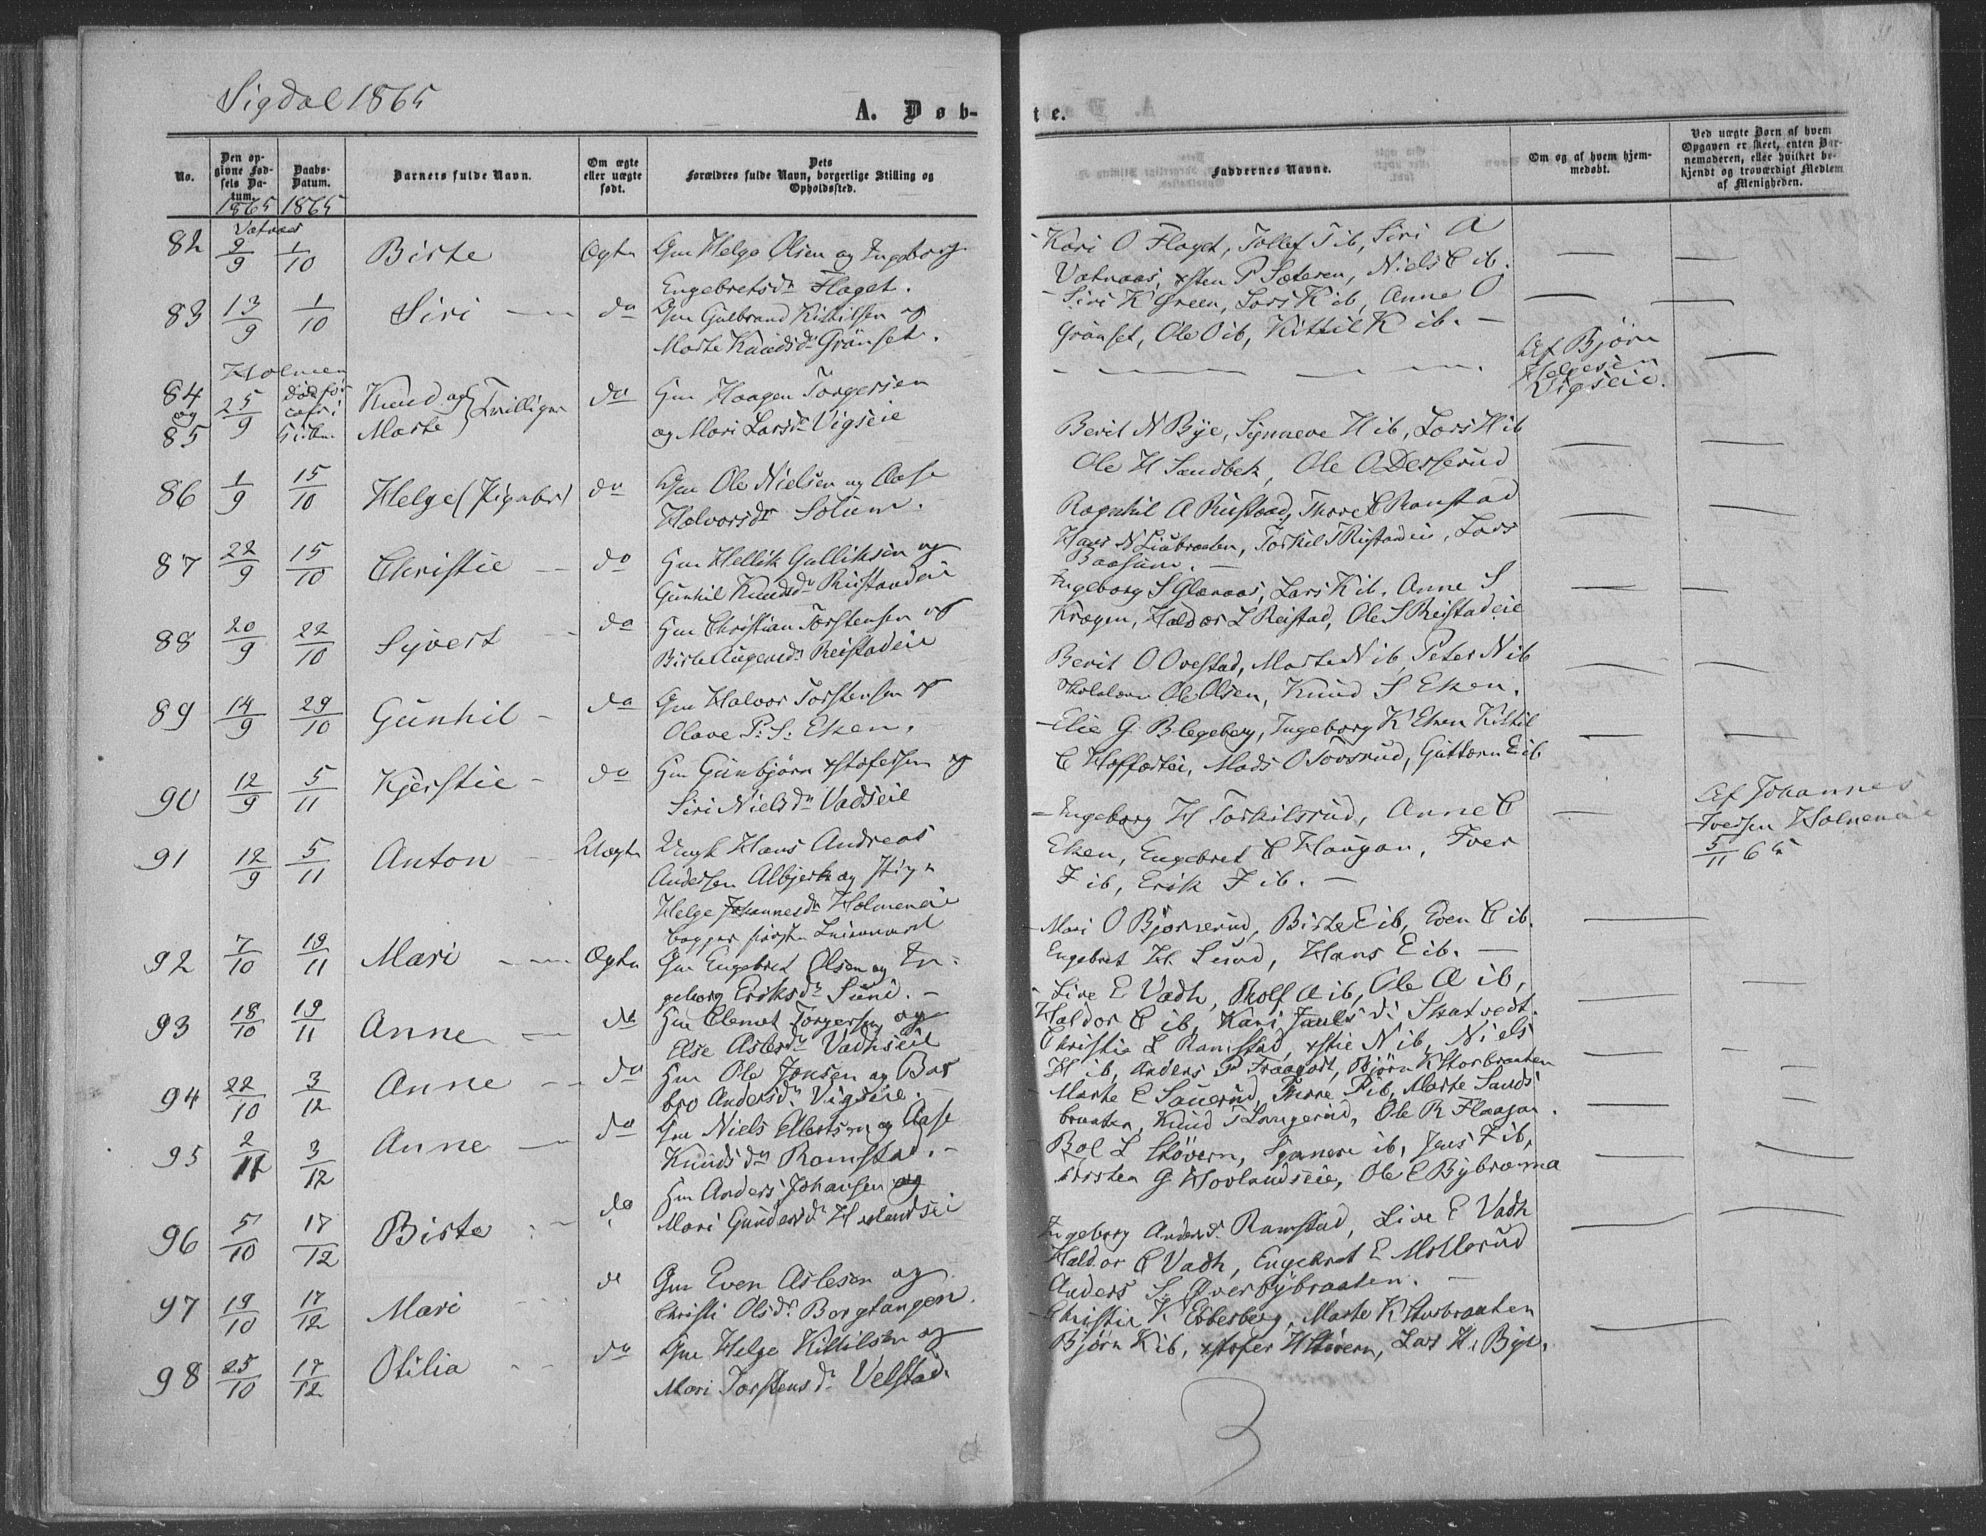 Sigdal 1865
A. Døb-
te.
No.
Den op-
givne Fød-
sels Da-
tum.
1865
Daabs-
Datum.
1865
Barnets fulde Navn.
Om ægte
eller uægte
født.
Dets
Forældres fulde Navn, borgerlige Stilling og
Opholdssted.
Faddernes Navne.
Om og af hvem hjem-
medøbt.
Ved uægte Børn af hvem
Opgaven er skeet, enten Bar-
nemoderen, eller hvilket be-
kjendt og troværdigt Medlem
af Menigheden.
Vatnaas
82 9/9 1/10 Birte Ægte Gm Helge Olsen og Ingeborg
Engebretsdr Flaget.
Kari O Flaget, Tollef T ib, Siri A
Vatnaas, xsten P Sæteren, Niels C ib.
83 13/9 1/10 Siri do Gm Gulbrand Kittilsen og
Marte Knudsdr Grønset.
Siri K Green, Lars K ib, Anne O
Grønset, Ole O ib, Kittil K ib.
Holmen
84 og 85 25/9 Knud og Marte Tvilliger do Gm Haagen Torgersen
og Mari Larsdr Vigseie
Af Bjørn
Helgesen
Vigseie.
Berit N Bye, Synneve H ib, Lars H ib
Ole H Sandbek, Ole O Desserud
86 1/9 15/10 Helge (Pigebr) do Gm Ole Nielsen og Aase
Halvorsdr Solum.
Ragnhil A Rustad, Thore C Ramstad
Hans N Liubraaten, Torkil T Reistadeie, Lars
Baasum.
87 22/9 15/10 Christie do Gm Hellik Gulliksen og
Gunhil Knudsdr Reistadeie
Ingeborg S Glænaas, Lars K ib, Anne S
Kragen, Haldor L Reistad, Ole S Reistadeie
88 20/9 22/10 Syvert do Gm Christian Torstensen og
Birte Augensdr Reistadeie
Berit O Ovestad, Marte N ib, Peter N ib
Ole Olsen, Knud S Eken.
89 14/9 29/10 Gunhil do Gm Halvor Torstensen og
Olave P. S. Eken.
Elie G Blegeberg, Ingeborg K Eken Kittil
C Hoffartei, Mads O Tovsrud, Guttorm E ib
90 12/9 5/11 Kjerstie do Gm Gunbjørn xstofersen og
Siri Nielsdr Vadseie
Ingeborg H Torkilsrud, Anne C
Eken, Engebret C Haugan, Iver
I ib, Erik I ib.
91 12/9 5/11 Anton Uægte Ungk Hans Andreas
Andersen Albjerk og Pige
Helge Johannesdr Holmeneie
begges første Leiermaal
Af Johannes
Iversen Holmeneie
5/11 65
Mari O Bjørnerud, Birte E ib, Even C ib.
Engebret H Lund, Hans E ib.
92 7/10 19/11 Mari Ægte Gm Engebret Olsen og In-
geborg Eriksdr Sund.
Live E Vadh, Rolf A ib, Ole A ib,
Haldor C ib, Kari Paulsdr Skatvedt.
93 18/10 19/11 Anne do Gm Clemet Torgersen og
Else Aslesdr Vadhseie
Christie L Ramstad, xstie N ib, Niels
H ib, Anders P Fraagort, Bjørn K Storbraaten
94 22/10 3/12 Anne do Gm Ole Jonsen og Bar
bro Andersdr Vigseie.
Marte E Sauerud, Thore P ib, Marte Sands
braaten, Knud T Langerud, Ole R Flaagan.
95 2/11 3/12 Anne do Gm Niels Ellertsen og Aase
Knudsdr Ramstad.
Bol L Støvern, Synneve ib, Jens I ib,
Kirsten G Hovlandseie, Ole E Bybraina
96 5/10 17/12 Birte do Gm Anders Johansen og
Mari Gundersdr Hovlandseie
Ingeborg Andersd. Ramstad, Live E Vadh
Haldor C Vadh, Engebret E Mollerud
Anders S. Øverbybraaten.
97 19/10 17/12 Mari do Gm Even Aslesen og
Christi Olsdr Borgtangen.
Christie K Ebbesberg, Marte K Storbraaten
Bjørn K ib, xstofer H Støvern, Lars H. Bye.
98 25/10 17/12 Otilia do Gm Helge Kittilsen og
Mari Torstensdr Velstad.
3